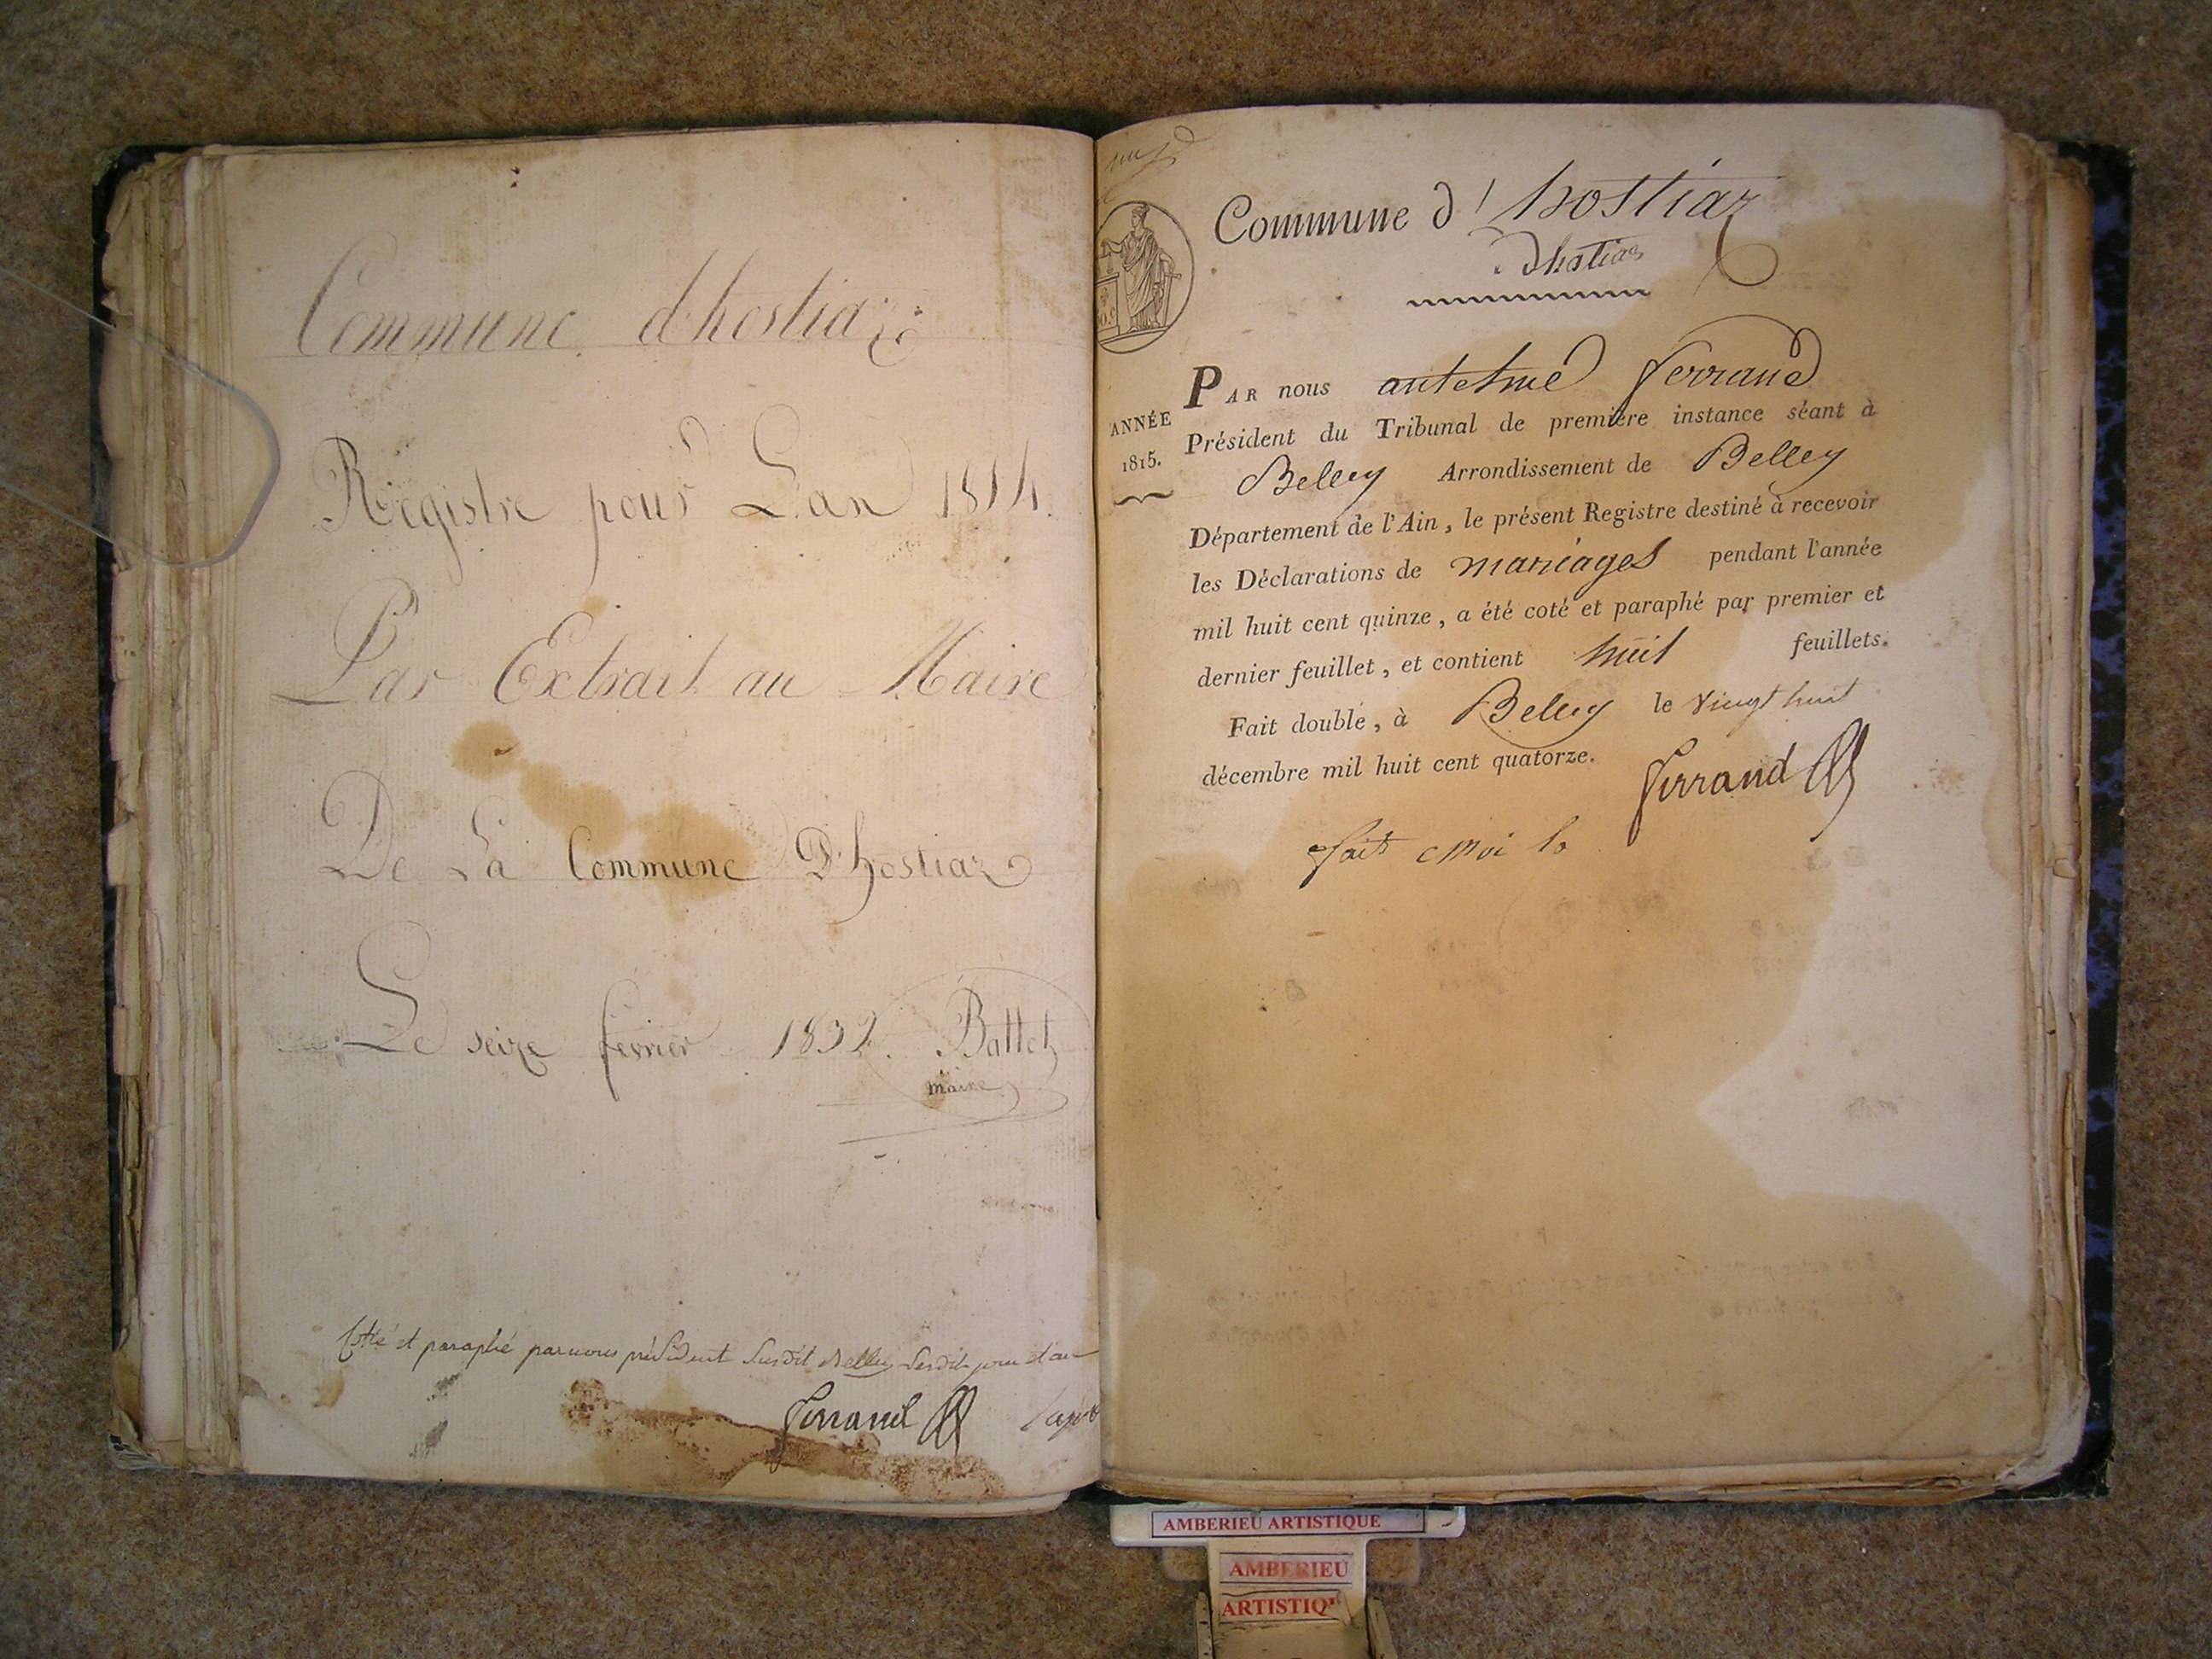 Commune d'hostiaz
Registre pour L'an 1814.
Par Extrait au Maire
De La Commune D'hostiaz
Le seize fevrier 1832. Battet
maire
Cotté et paraphé par nous président susdit Belley lesdits jour et an
Ferrand
Commune d'hostiaz
Dhostias
ANNÉE
1815.
PAR nous antelme ferrand
Président du Tribunal de première instance séant à
Belley Arrondissement de Belley
Département de l'Ain, le présent Registre destiné à recevoir
les Déclarations de mariages pendant l'année
mil huit cent quinze, a été coté et paraphé par premier et
dernier feuillet, et contient huit feuillets.
Fait double, à Belley le vingt huit
décembre mil huit cent quatorze.
ferrand
fait
AMBERIEU ARTISTIQUE
AMBERIEU
ARTISTIQ